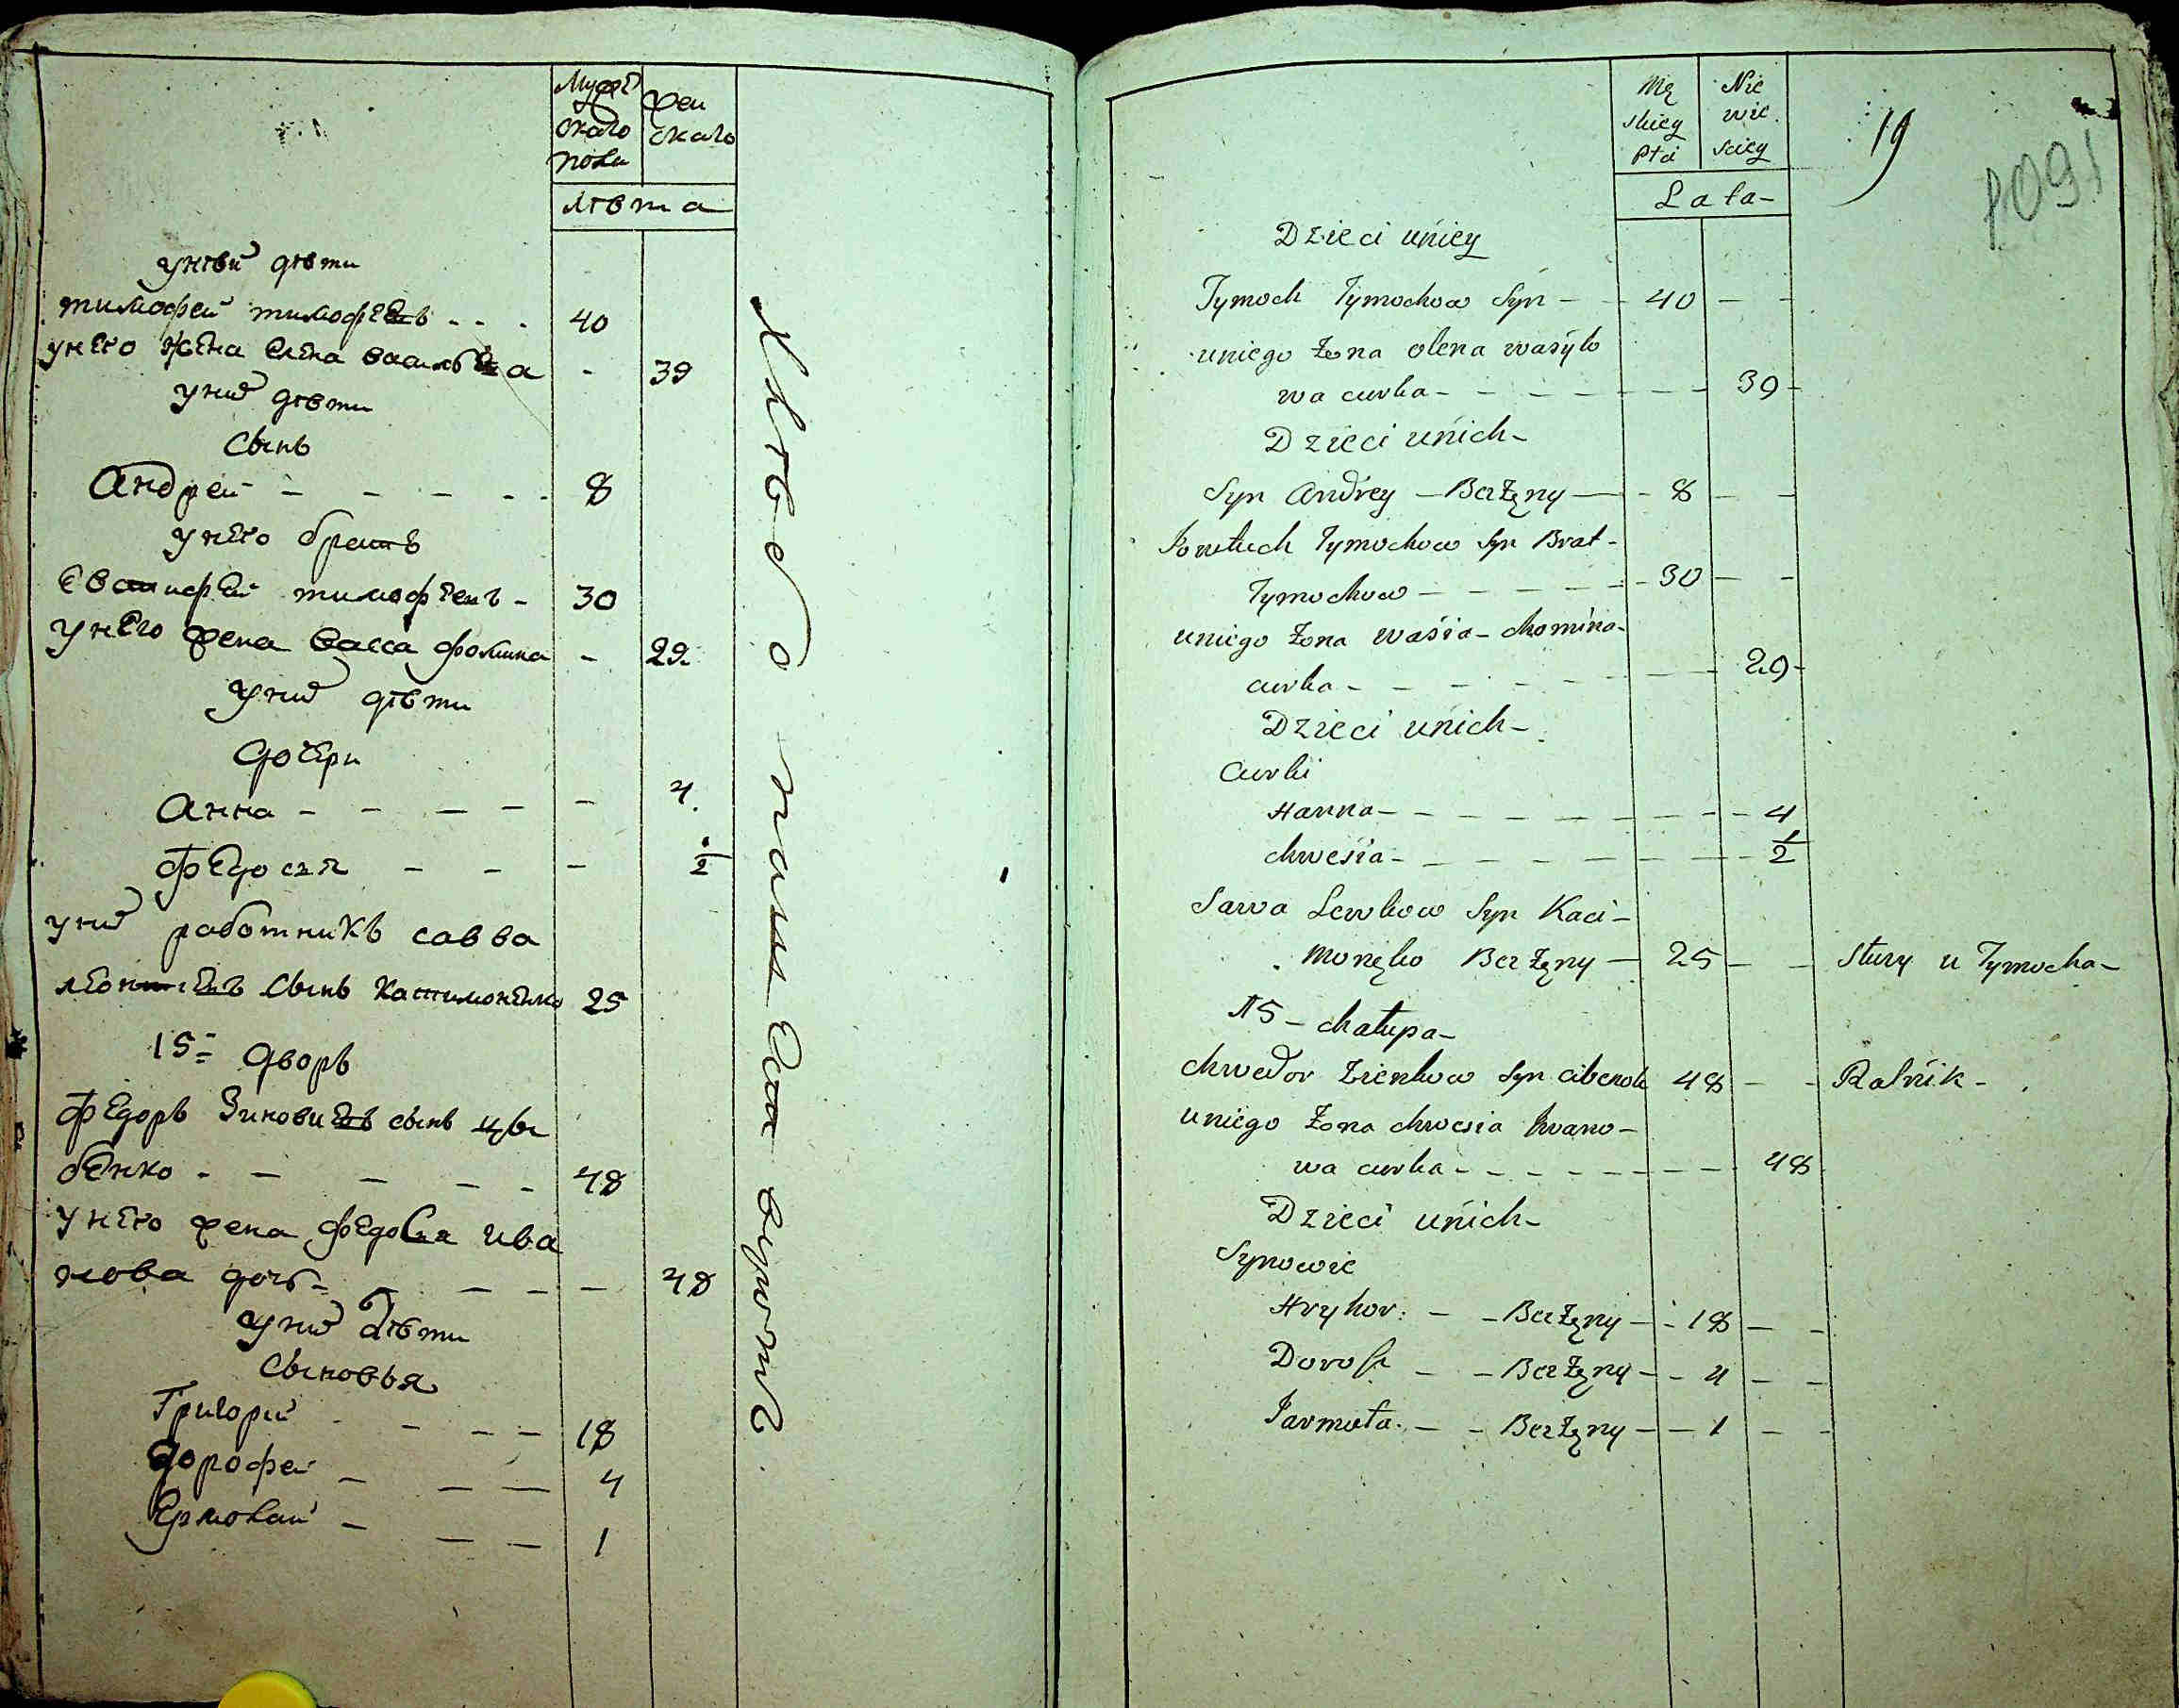 Мужѣ
скаго
пола
жен
скаго
лѣта
унѣй дѣти
тимофей тимофеевъ - - - 40
унего жена елена васильева - 39
унихъ дѣти
сынъ
Андрей - - - - - 8
унего братъ
тимофѣевъ - 30
унего жена васса фомина - 29
унихъ дѣти
дочери
Анна - - - - - 4
Федосия - - - 1/2
унихъ работникъ савва
леонтиевъ сынъ 25
15= дворъ
Федоръ Зиновиевъ сынъ цы
бенко - - - - - 48
унего жена федосия ива
нова дочь - - - - 48
унихъ дѣти
сыновья
Григорий - - - - 18
Дорофей - - - 4
Ермолай - - - 1
Mę
skiey
Płci
Nie
wie
sciey
19
1091
Lata-
Dzieci uniey
Tymoch Tymochow Syn - - 40 - -
uniego Żona olena wasylo
wa curka - - - - - - - 39 -
Dzieci unich -
Syn Andrey - Berżęny - - 8 - -
Tymochow Syn Brat -
Tymochow - - - - - - 30 - -
uniego Żona wasia - chomina -
curka - - - - - - - - 29 -
Dzieci unich -
Curki
Hanna - - - - - - - - - 4
chwesia - - - - - - - - 1/2
Sawa Lewkow Syn Kaci -
monęko Berżęny - 25 - - Służy u Tymocha -
N 5 - chałupa -
chwedor Zienkow Syn cibenok 48 - - Rolnik -
uniego Żona chwesia Iwano -
wa curka - - - - - - - - 48
Dzieci unich -
Synowie
Hryhor. - - Berżęny - - 18 - -
Dorosz - - Berżęny - - 4 - -
Jarmoła. - - Berżęny - - 1 - -